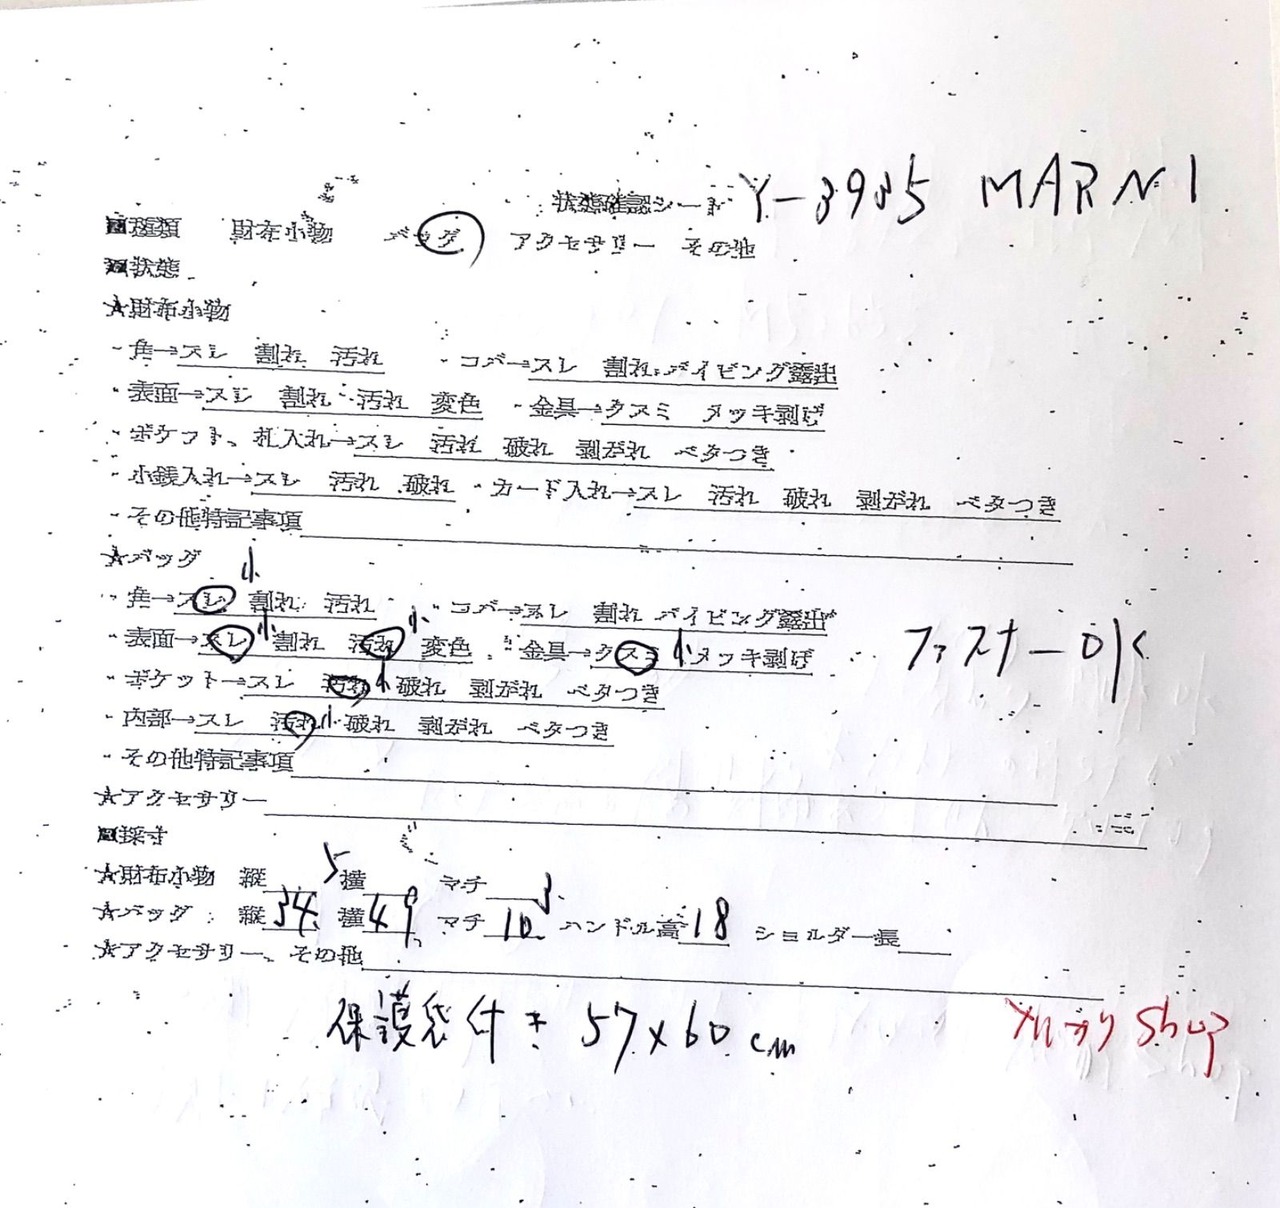 状態確認シート Y-3935 MARNI
■種類 財布小物 バッグ アクセサリー その他
■状態
★財布小物
・角→スレ 割れ 汚れ ・コバ→スレ 割れ パイピング露出
・表面→スレ 割れ 汚れ 変色 ・金具→クスミ メッキ剥げ
・ポケット、札入れ→スレ 汚れ 破れ 剥がれ ベタつき
・小銭入れ→スレ 汚れ 破れ ・カード入れ→スレ 汚れ 破れ 剥がれ ベタつき
・その他特記事項
★バッグ
・角→スレ 小 割れ 汚れ ・コバ→スレ 割れ パイピング露出
・表面→スレ 小 割れ 汚れ 小 変色 ・金具→クスミ 小 メッキ剥げ ファスナーOK
・ポケット→スレ 汚れ 小 破れ 剥がれ ベタつき
・内部→スレ 汚れ 小 破れ 剥がれ ベタつき
・その他特記事項
★アクセサリー
■採寸
★財布小物 縦 横 マチ
★バッグ 縦34.5 横49 マチ10 ハンドル高18 ショルダー長
★アクセサリー、その他
保護袋付き 57×60cm
Shop